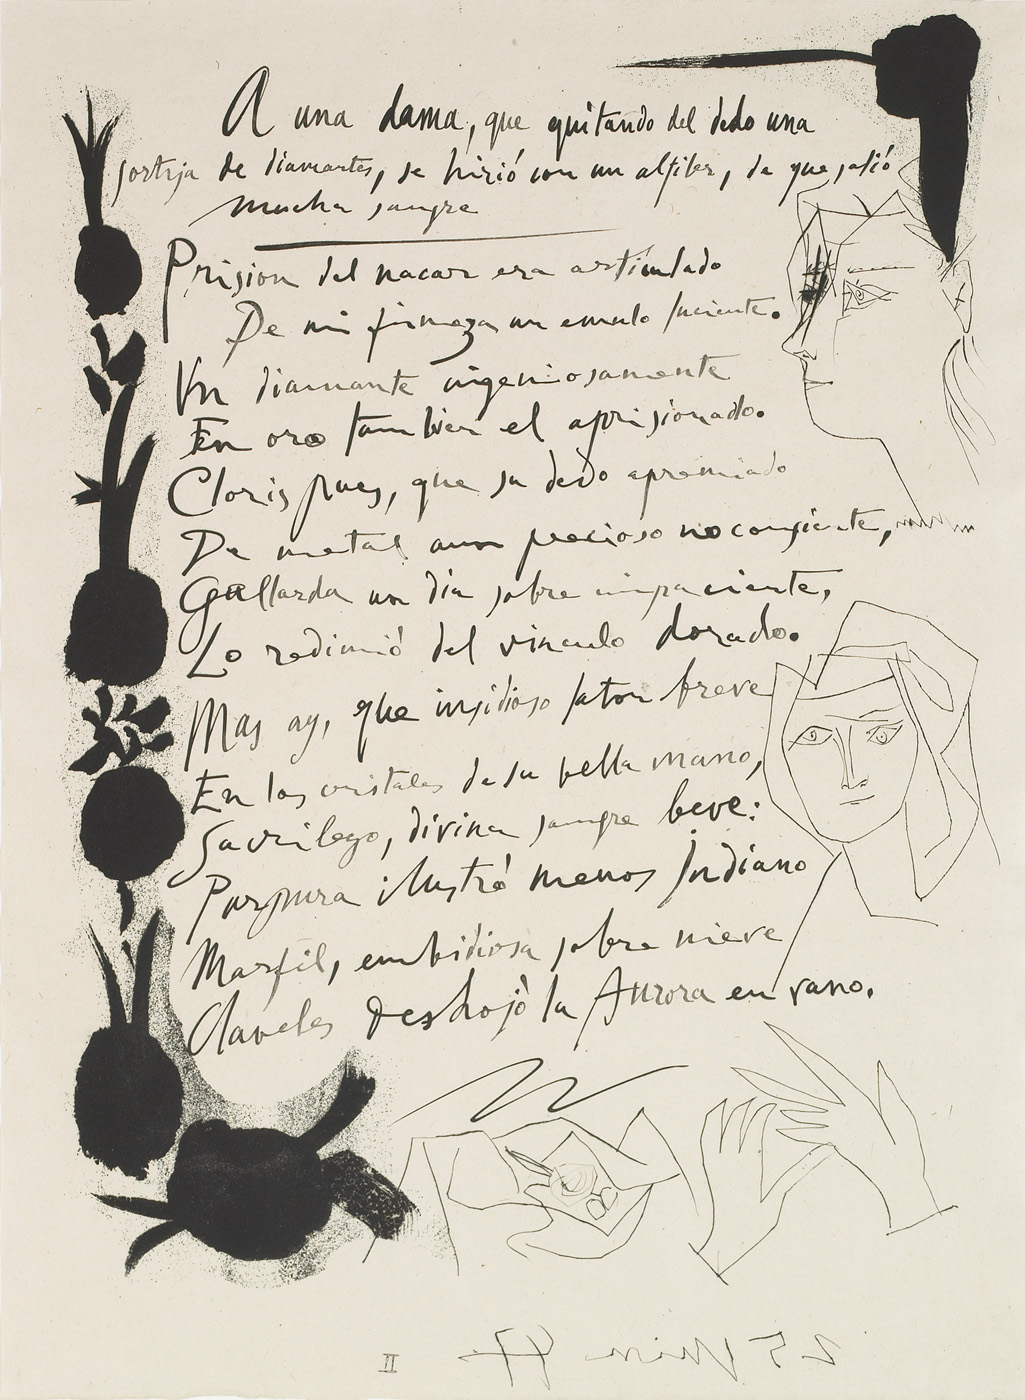 A una dama, que quitando del dedo una
sortija de diamantes, se hirió con un alfiler, de que salió
mucha sangre
Prision del nacar era articulado
De mi firmeza un emulo luciente.
Vn diamante ingeniosamente
En oro tambien el aprisionado.
Cloris pues, que su dedo apremiado
De metal aun precioso no consiente,
Gallarda un dia sobre impaciente,
Lo redimió del vinculo dorado.
Mas ay, que insidioso laton breve
En los cristales de su bella mano,
Sacrilego, divina sangre beve:
Purpura ilustró menos Indiano
Marfil, embidiosa sobre nieve
Claveles deshojò la Aurora en vano.
25 Juin 47
II